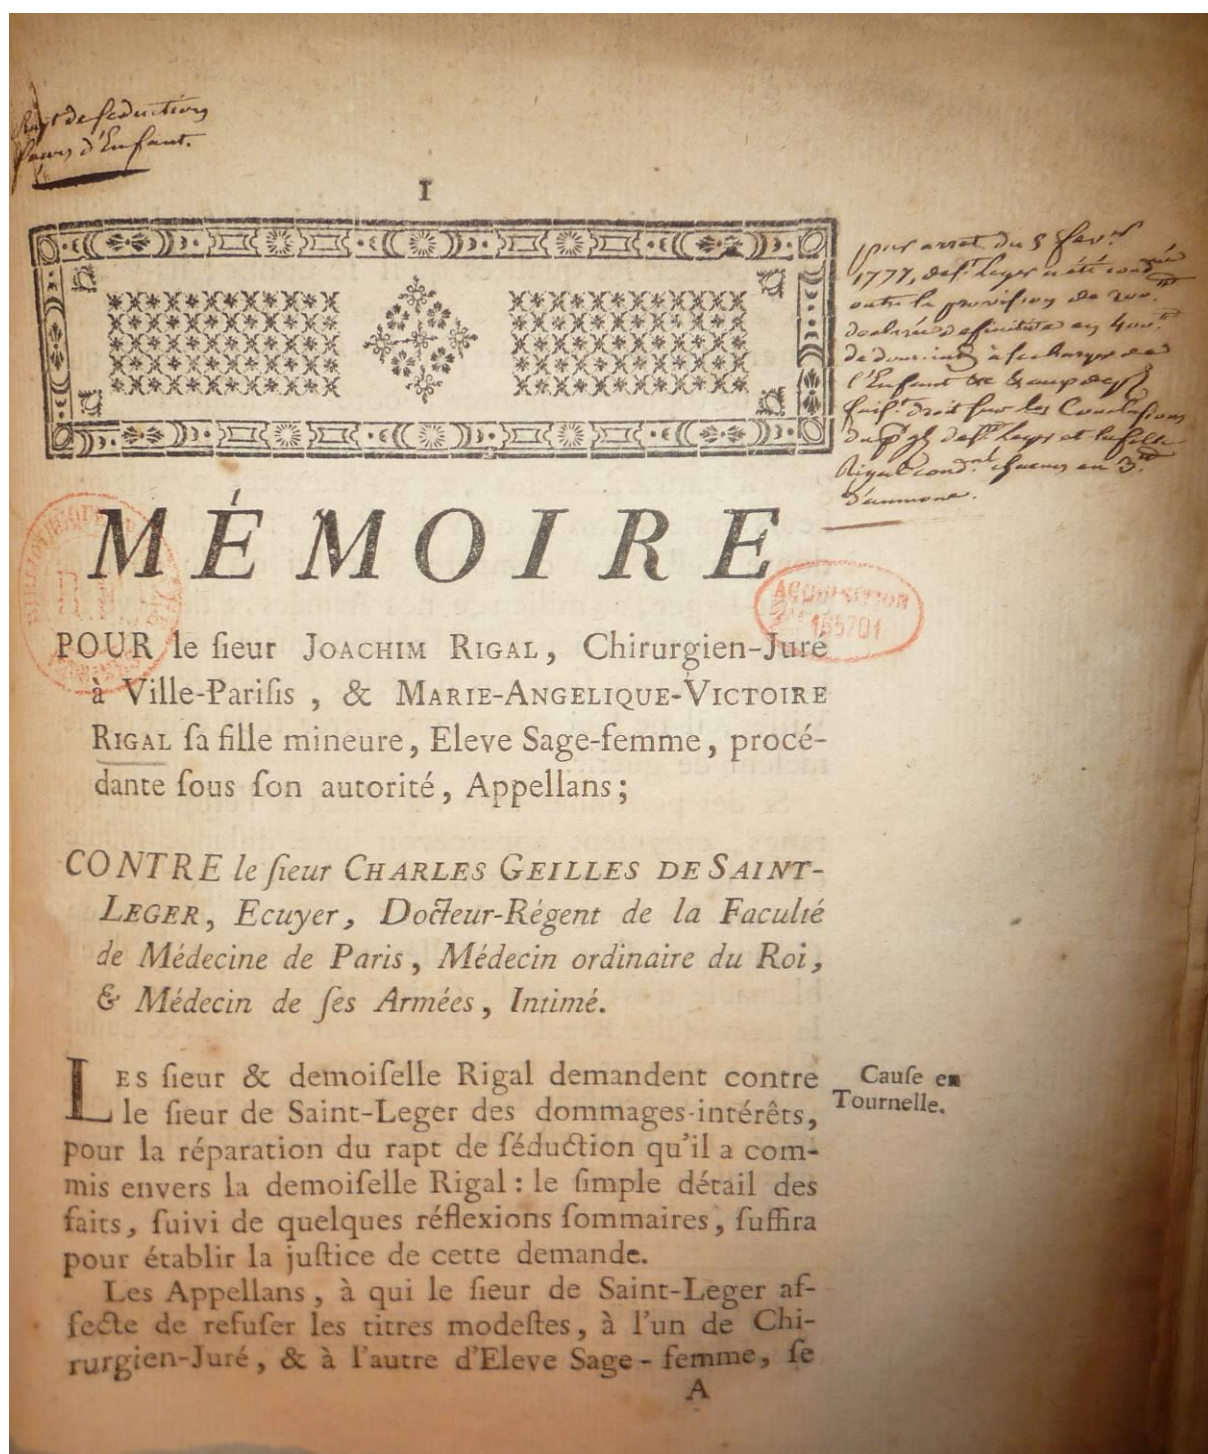 Rapt de seduction
d'Enfant.
1
par arret du 5 fevr
1777, de St leger a été cond
outre la provision de 200
de dom. à se charger de
l'Enfant &c
faist droit sur les Conclusions
du de St Leger et la fille
Rigal cond. chacun en 3
d'aumone.
MÉMOIRE
ACQUISITION
165701
POUR le ſieur JOACHIM RIGAL, Chirurgien-Juré
à Ville-Pariſis, & MARIE-ANGELIQUE-VICTOIRE
RIGAL ſa fille mineure, Eleve Sage-femme, procé-
dante ſous ſon autorité, Appellans;
CONTRE le ſieur CHARLES GEILLES DE SAINT-
LEGER, Ecuyer, Docteur-Régent de la Faculté
de Médecine de Paris, Médecin ordinaire du Roi,
& Médecin de ſes Armées, Intimé.
LES ſieur & demoiſelle Rigal demandent contre
le ſieur de Saint-Leger des dommages-intérêts,
pour la réparation du rapt de ſéduction qu'il a com-
mis envers la demoiſelle Rigal: le ſimple détail des
faits, ſuivi de quelques réflexions ſommaires, ſuffira
pour établir la juſtice de cette demande.
Cauſe en
Tournelle.
Les Appellans, à qui le ſieur de Saint-Leger af-
fecte de refuſer les titres modeſtes, à l'un de Chi-
rurgien-Juré, & à l'autre d'Eleve Sage-femme, ſe
A